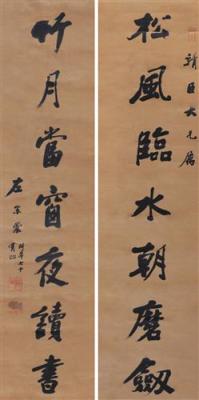 靖臣大兄屬
松風臨水朝磨劔
竹月當窗夜讀書
左宗棠
時年七十